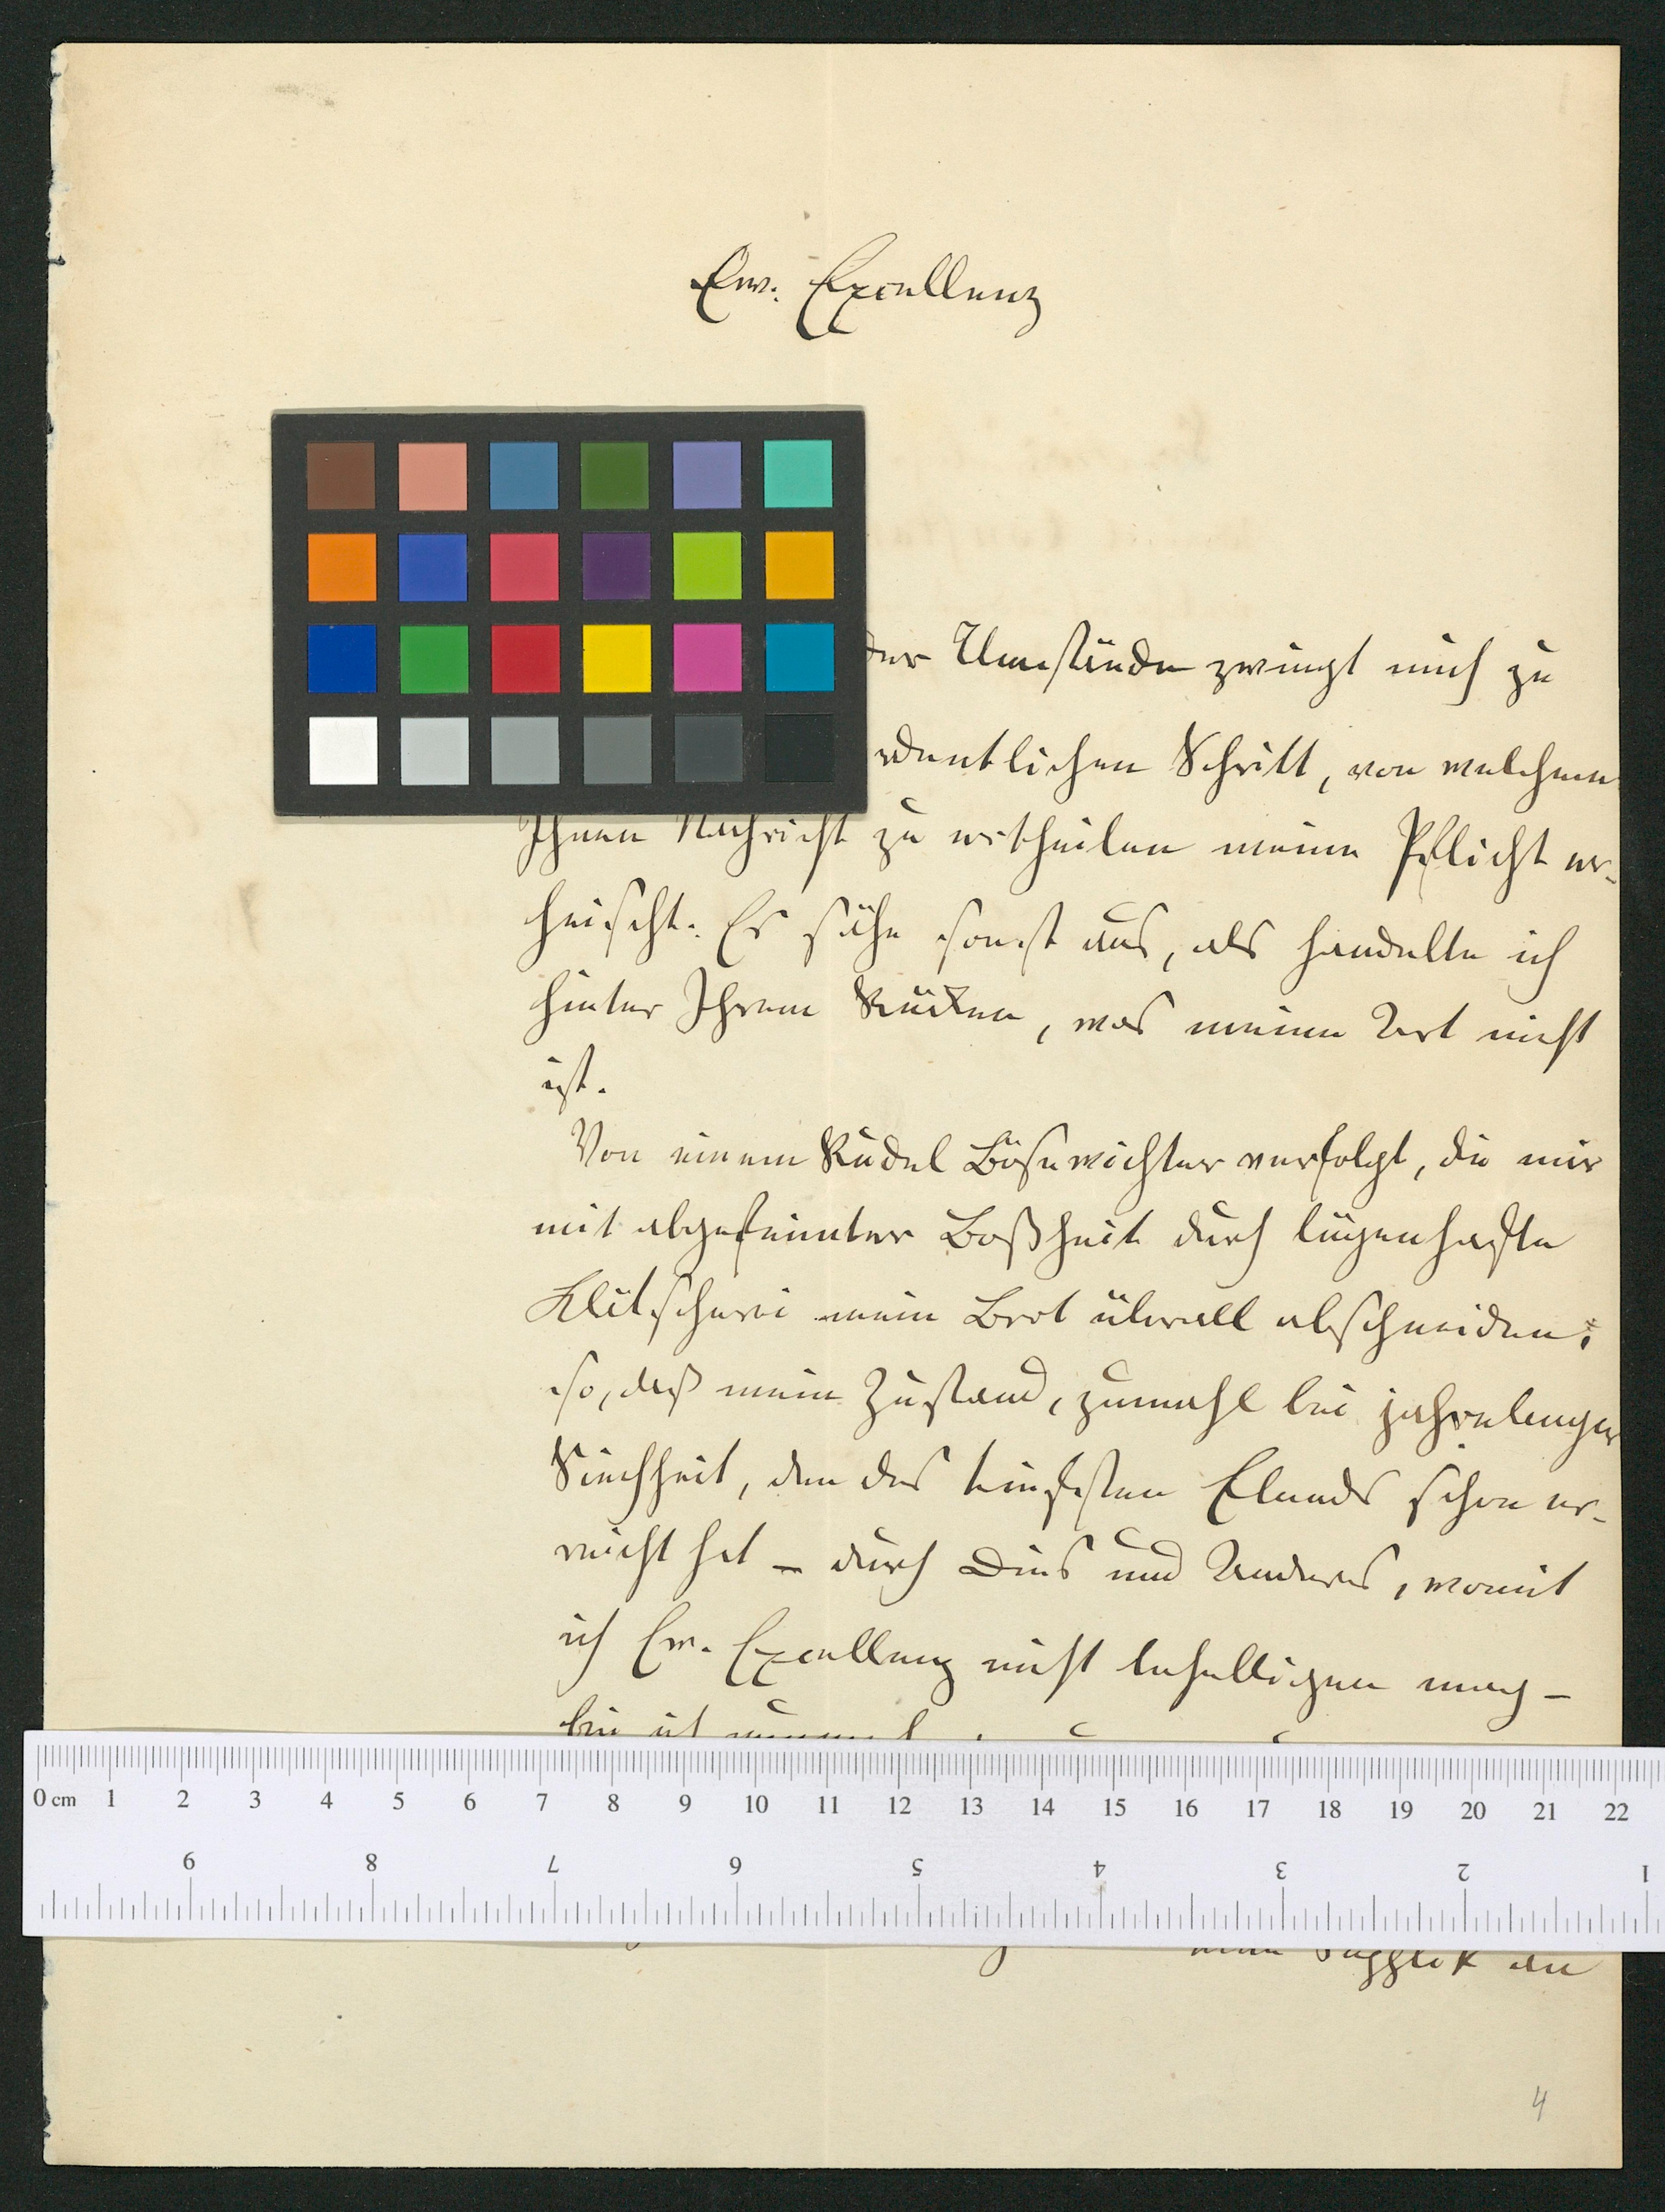 Ew. Excellenz
der Umstände zwingt mich zu
rdentlichen Schritt, von welchem
Ihnen Nachricht zu ertheilen meine Pflicht er-
heischt. Es sähe sonst aus, als handelte ich
hinter Ihrem Rücken, was meine Art nicht
ist.
Von einem Rudel Bösewichter verfolgt, die mir
mit abgefeimter Boßheit durch lügenhafte
Klitscherei mein Brot überall abschneiden;
so, daß mein Zustand, zumahl bei jahrelanger
Siechheit, den des tiefsten Elends schon er-
reicht hat – durch Dies und Anderes, womit
ich Ew. Excellenz nicht behelligen mag –
bin ich
0 cm 1 2 3 4 5 6 7 8 9 10 11 12 13 14 15 16 17 18 19 20 21 22
9 8 7 6 5 4 3 2 1
Supplik an
4